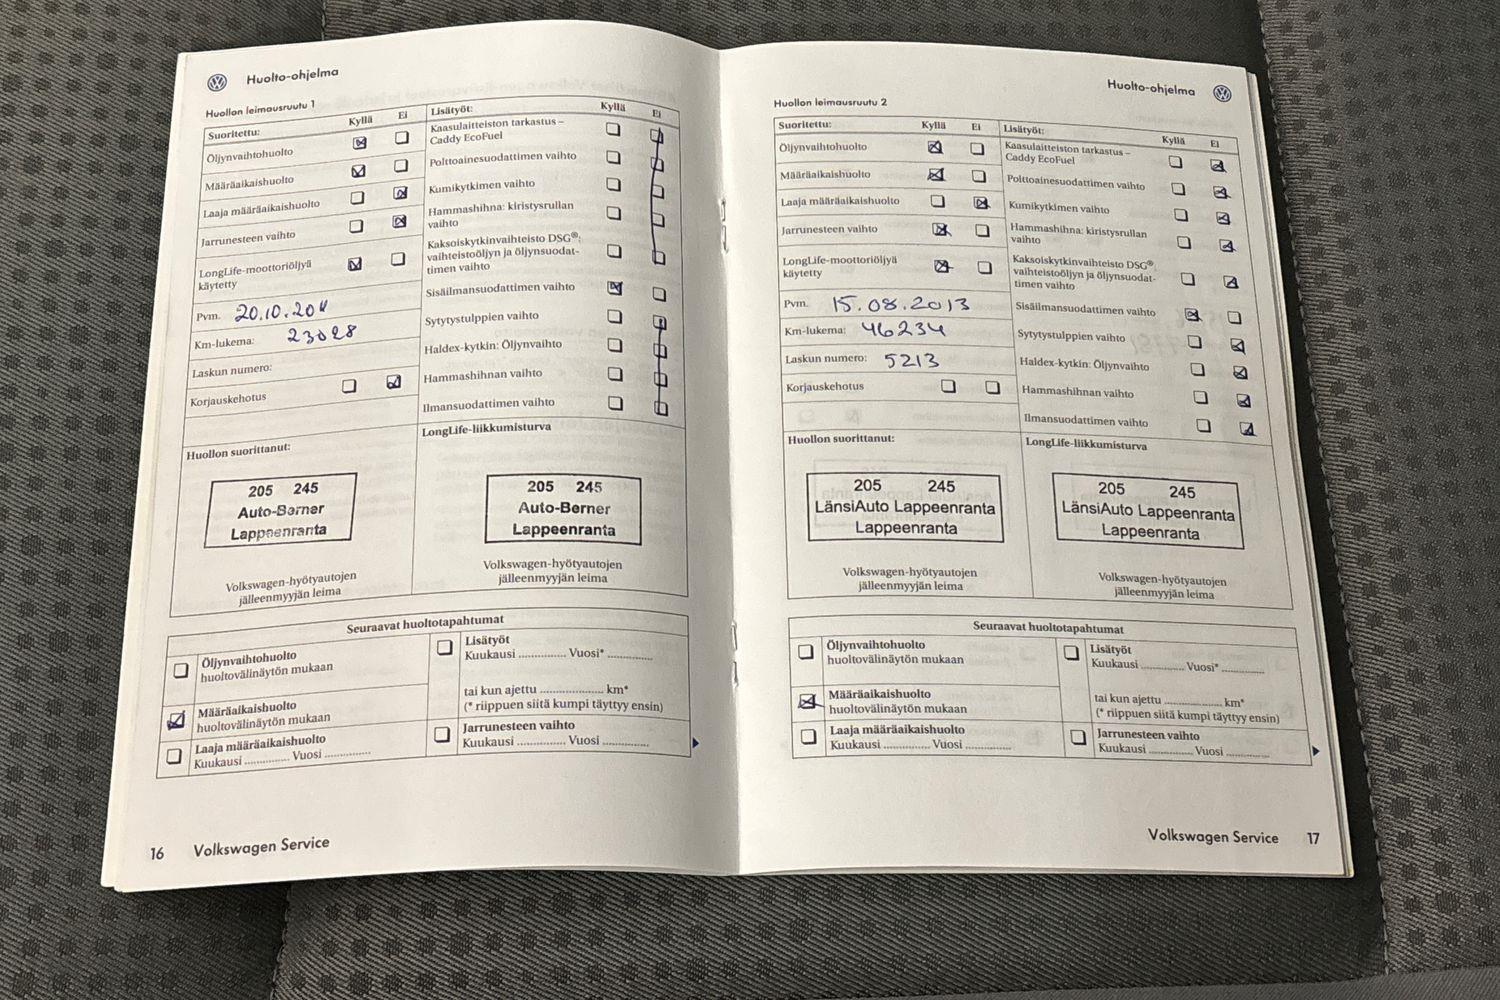 Huolto-ohjelma
Huollon leimausruutu 1
Suoritettu: Kyllä Ei
Öljynvaihtohuolto
Määräaikaishuolto
Laaja määräaikaishuolto
Jarrunesteen vaihto
LongLife-moottoriöljyä
käytetty
Pvm. 20.10.201
Km-lukema: 23028
Laskun numero:
Korjauskehotus
Lisätyöt: Kyllä Ei
Kaasulaitteiston tarkastus –
Caddy EcoFuel
Polttoainesuodattimen vaihto
Kumikytkimen vaihto
Hammashihna: kiristysrullan
vaihto
Kaksoiskytkinvaihteisto DSG®:
vaihteistoöljyn ja öljynsuodat-
timen vaihto
Sisäilmansuodattimen vaihto
Sytytystulppien vaihto
Haldex-kytkin: Öljynvaihto
Hammashihnan vaihto
Ilmansuodattimen vaihto
Huollon suorittanut:
205 245
Auto-Berner
Lappeenranta
Volkswagen-hyötyautojen
jälleenmyyjän leima
LongLife-liikkumisturva
205 245
Auto-Berner
Lappeenranta
Volkswagen-hyötyautojen
jälleenmyyjän leima
Seuraavat huoltotapahtumat
Öljynvaihtohuolto
huoltovälinäytön mukaan
Määräaikaishuolto
huoltovälinäytön mukaan
Laaja määräaikaishuolto
Kuukausi .............. Vuosi ..............
Lisätyöt
Kuukausi .............. Vuosi* ..............
tai kun ajettu .................... km*
(* riippuen siitä kumpi täyttyy ensin)
Jarrunesteen vaihto
Kuukausi .............. Vuosi ..............
16 Volkswagen Service
Huolto-ohjelma
Huollon leimausruutu 2
Suoritettu: Kyllä Ei
Öljynvaihtohuolto
Määräaikaishuolto
Laaja määräaikaishuolto
Jarrunesteen vaihto
LongLife-moottoriöljyä
käytetty
Pvm. 15.08.2013
Km-lukema: 46234
Laskun numero: 5213
Korjauskehotus
Lisätyöt: Kyllä Ei
Kaasulaitteiston tarkastus –
Caddy EcoFuel
Polttoainesuodattimen vaihto
Kumikytkimen vaihto
Hammashihna: kiristysrullan
vaihto
Kaksoiskytkinvaihteisto DSG®:
vaihteistoöljyn ja öljynsuodat-
timen vaihto
Sisäilmansuodattimen vaihto
Sytytystulppien vaihto
Haldex-kytkin: Öljynvaihto
Hammashihnan vaihto
Ilmansuodattimen vaihto
Huollon suorittanut:
205 245
LänsiAuto Lappeenranta
Lappeenranta
Volkswagen-hyötyautojen
jälleenmyyjän leima
LongLife-liikkumisturva
205 245
LänsiAuto Lappeenranta
Lappeenranta
Volkswagen-hyötyautojen
jälleenmyyjän leima
Seuraavat huoltotapahtumat
Öljynvaihtohuolto
huoltovälinäytön mukaan
Määräaikaishuolto
huoltovälinäytön mukaan
Laaja määräaikaishuolto
Kuukausi .............. Vuosi ..............
Lisätyöt
Kuukausi .............. Vuosi* ..............
tai kun ajettu .................... km*
(* riippuen siitä kumpi täyttyy ensin)
Jarrunesteen vaihto
Kuukausi .............. Vuosi ..............
Volkswagen Service 17